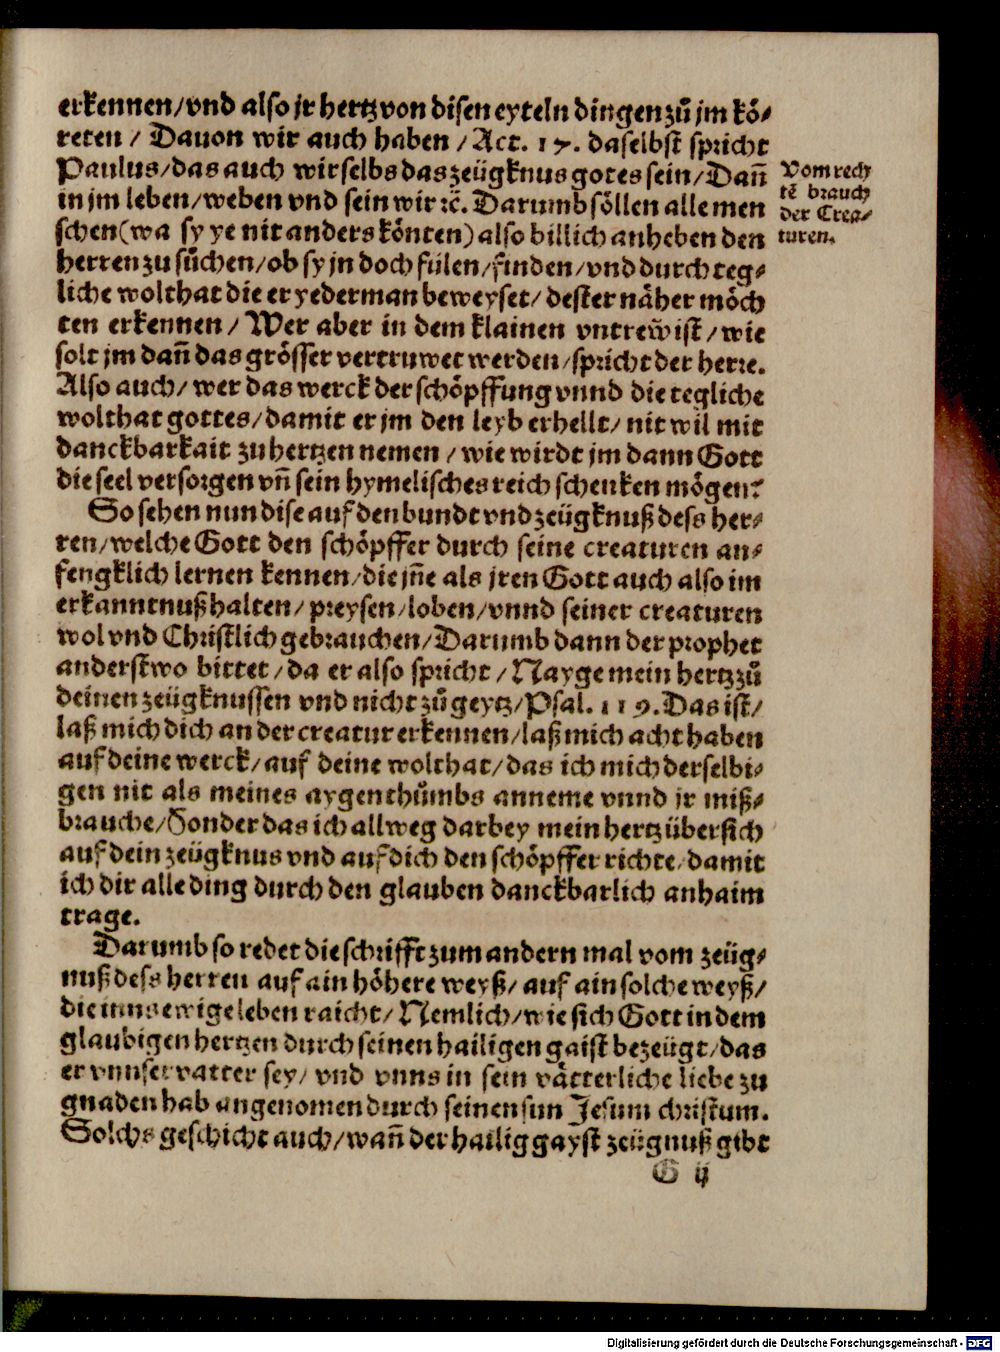 erkennen/vnd also jr hertz von disen eyteln dingen zuͦ jm kö⸗
reten / Dauon wir auch haben / Act. 17. daselbst spricht
Paulus/das auch wir selbs das zeügknus gotes sein/Dañ
in jm leben/weben vnd sein wir ꝛc̃. Darumb söllen alle men
schen(wa sy ye nit anders könten) also billich anheben den
herren zu suͦchen/ob sy jn doch fülen/finden/vnd durch teg⸗
liche wolthat die er yederman beweyset/ dester näher möch
ten erkennen / Wer aber in dem klainen vntrew̃ ist/wie
solt jm dañ das grösser vertruwet werden/spricht der herre.
Also auch/ wer das werck der schöpffung vnnd die tegliche
wolthat gottes/damit er jm den leyb erhellt/ nit wil mit
danckbarkait zu hertzen nemen / wie wirdt jm dann Gott
die seel versorgen vñ sein hymelisches reich schenken mögen?
So sehen nun dise auf den bundt vnd zeügknuß dess her⸗
ren/welche Gott den schöpffer durch seine creaturen an⸗
fengklich lernen kennen/die jñe als jren Gott auch also im
erkanntnuß halten/ preysen/loben/vnnd seiner creaturen
wol vnd Christlich gebrauchen/Darumb dann der prophet
anderstwo bittet/da er also spricht/Nayge mein hertz zuͦ
deinen zeügknussen vnd nicht zuͦ geytz/Psal. 119. Das ist/
laß mich dich an der creatur erkennen/laß mich acht haben
auf deine werck/auf deine wolthat/das ich mich derselbi⸗
gen nit als meines aygenthuͦmbs anneme vnnd jr miß⸗
brauche/Sonder das ich allweg darbey mein hertz übersich
auf dein zeügknus vnd auf dich den schöpffer richte/damit
ich dir alle ding durch den glauben danckbarlich anhaim
trage.
Darumb so redet die schrifft zum andern mal vom zeüg⸗
nuß dess herren auf ain höhere weyß/ auf ain solche weyß/
die inns ewige leben raicht/ Nemlich/wie sich Gott in dem
glaubigen hertzen durch seinen hailigen gaist bezeügt/das
er vnnser vatter sey/ vnd vnns in sein vätterliche liebe zu
gnaden hab angenomen durch seinen sun Jesum christum.
Solchs geschicht auch/wañ der hailig gayst zeügnuß gibt
G ij
Vom rech
tẽ brauch
der Crea⸗
turen.
Digitalisierung gefördert durch die Deutsche Forschungsgemeinschaft - DFG